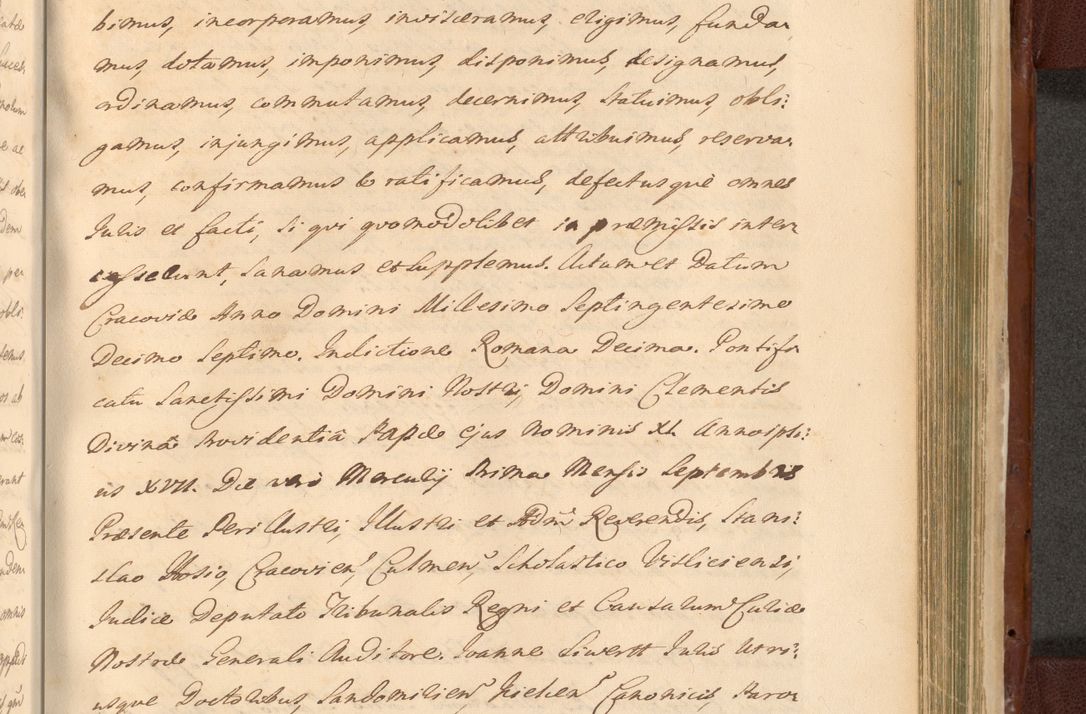 bimus, incorporamus, invisceramus, erigimus, funda-
mus, dotamus, imponimus, disponimus, designamus,
ordinamus, commutamus, decernimus, statuimus, obli:
gamus, injungimus, applicamus, attribuimus, reserva-
mus, confirmamus & ratificamus, defectusquè omnes
Iuris et facti, si qui quomodolibet in præmissis inter-
cesserunt, sanamus et supplemus. Actum et Datum
Cracoviæ Anno Domini Millesimo Septingentesimo
Decimo Septimo. Indictione Romana Decima. Pontifi-
catu Sanctissimi Domini Nostri, Domini Clementis
Divinâ Providentiâ Papæ ejus Nominis XI. Anno ipsi:
us XVII. Die verò Mercurij Prima Mensis Septembris
Præsente Perillustri, Illustri et Adm Reverendis, Stani:
slao Hosig, Cracovien, Culmen, Scholastico Visliciensi,
Iudice Deputato Tribunalis Regni et Causarum Curiæ
Nostræ Generali Auditore. Ioanne Siwertt Iuris Utri:
usque Doctoribus, Sandomirien, Kielcen Canonicis,